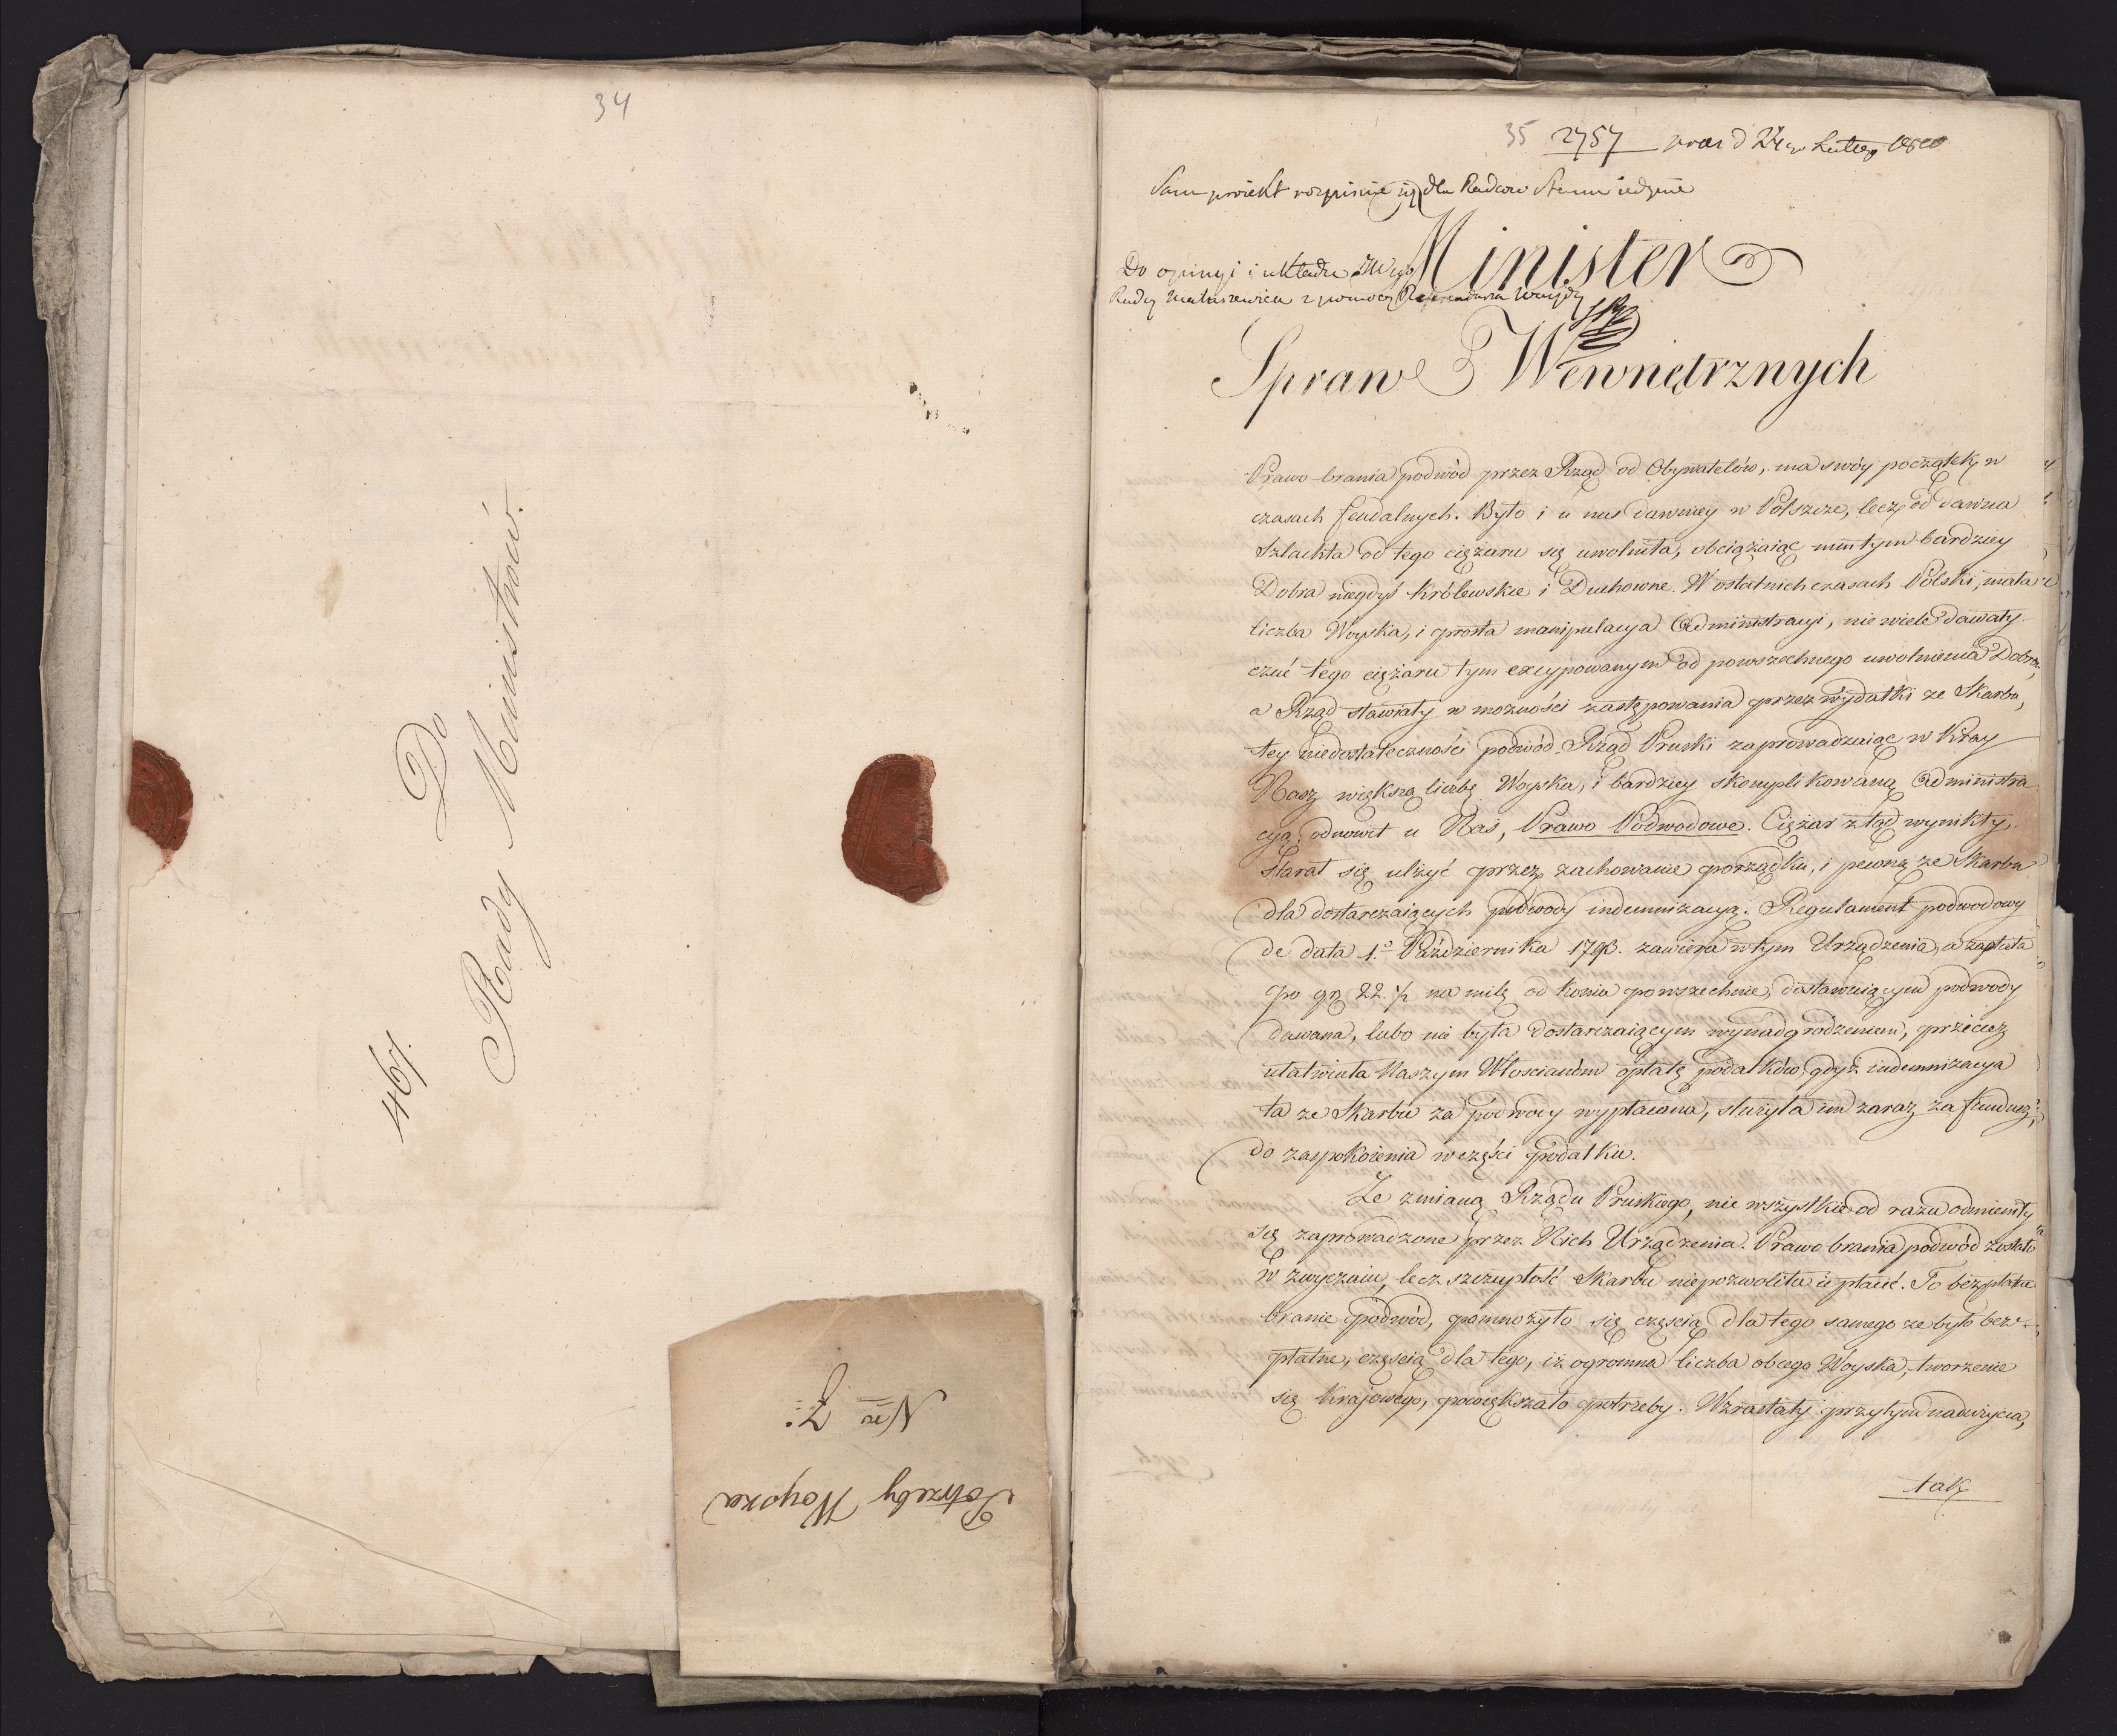 34
Do
Rady Ministrów.
467.
Potrzeby Woyska
Nro 7:
35 2757 praes d 24go Lutego 1810
Sam proiekt rozpisuie się dla Radców Stanu iedynie
Do opinyi i układu JW
Radcy Matuszewica z pomocą Referendarza
Minister
Spraw Wewnętrznych
Prawo brania podwód przez Rząd od Obywatelów, ma swóy początek w
czasach feudalnych. Było i u nas dawniey w Polszcze, lecz od dawna
Szlachta od tego ciężaru się uwolniła, obciążaiąc nim tym bardziey
Dobra niegdyś Królewskie i Duchowne. W ostatnich czasach Polski, mała
liczba Woyska, i prosta manipulacya Administracyi, nie wiele dawały
czuć tego ciężaru tym excypowanym od powszechnego uwolnienia Dobrom,
a Rząd stawiały w możności zastępowania przez wydatki ze Skarbu,
tey niedostateczności podwód. Rząd Pruski zaprowadzaiąc w Kray
Nasz większą liczbę Woyska, i bardziey skomplikowaną Administra
cyą, odnowił u Nas, Prawo Podwodowe. Ciężar ztąd wynikły,
Starał się ulżyć przez zachowanie porządku, i pewną ze Skarbu
dla dostarczaiących podwody indemnizacyą. Regulament podwodowy
de data 1o Października 1793. zawiera w tym Urządzenia, a zapłata
po gr. 22. 1/2 na milę od konia powszechnie, dostawuiącym podwody
dawana, lubo nie była dostarczaiącym wynadgrodzeniem, przecież
ułatwiała Naszym Włoscianom opłatę podatków, gdyż indemnizacya
ta ze Skarbu za podwody wypłacana, służyła im zaraz za fundusz
do zaspokoienia w części podatku.
Ze zmianą Rządu Pruskiego, nie wszystkie od razu odmieniły
się zaprowadzone przez Nich Urządzenia. Prawo brania podwód zostało
w zwyczaiu, lecz szczupłość Skarbu niepozwoliła ie płacić. To bezpłatne
branie podwód, pomnożyło się częścią dla tego samego ze było bez-
płatne, częścią dla tego, iż ogromna liczba obcego Woyska, tworzenie
się Krajowego, powiększało potrzeby. Wzrastały przytym nadużycia,
tak